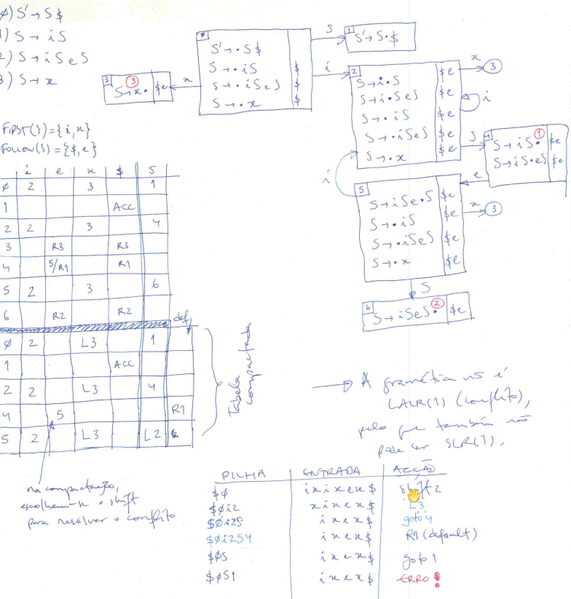 0) S'→S$
1) S→iS
2) S→iSeS
3) S→x
FIRST(S)={i,x}
FOLLOW(S)={$,e}
0
S'→·S$
S→·iS $
S→·iSeS $
S→·x $
S
1
S'→S·$
x
3
S→x· ③ $e
i
2
S→i·S $e
S→i·SeS $e
S→·iS $e
S→·iSeS $e
S→·x $e
x ③
i
S
4
S→iS· ① $e
S→iS·eS $e
e
i
5
S→iSe·S $e
S→·iS $e
S→·iSeS $e
S→·x $e
x ③
S
6
S→iSeS· ② $e
i e x $ S
0 2 3 1
1 ACC
2 2 3 4
3 R3 R3
4 S/R1 R1
5 2 3 6
6 R2 R2
def.
0 2 L3 1
1 ACC
2 2 L3 4
4 5 R1
5 2 L3 L2
Tabela compactada
na compactação,
escolhem-se o shift
para resolver o conflito
→ A gramática não é
LALR(1) (conflito),
pelo que também não
pode ser SLR(1).
PILHA ENTRADA ACÇÃO
$0 ixixex$ shift 2
$0i2 xixex$ L3
$0i2S ixex$ goto 4
$0i2S4 ixex$ R1 (default)
$0S ixex$ goto 1
$0S1 ixex$ ERRO!